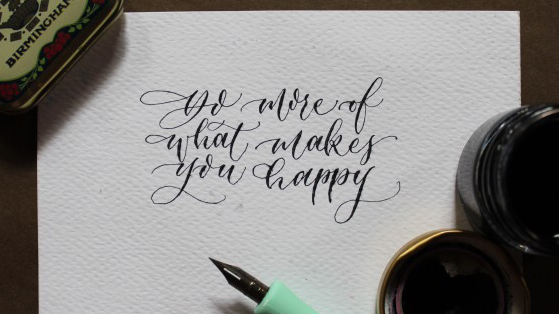 BIRMINGHAM
do more of
what makes
you happy